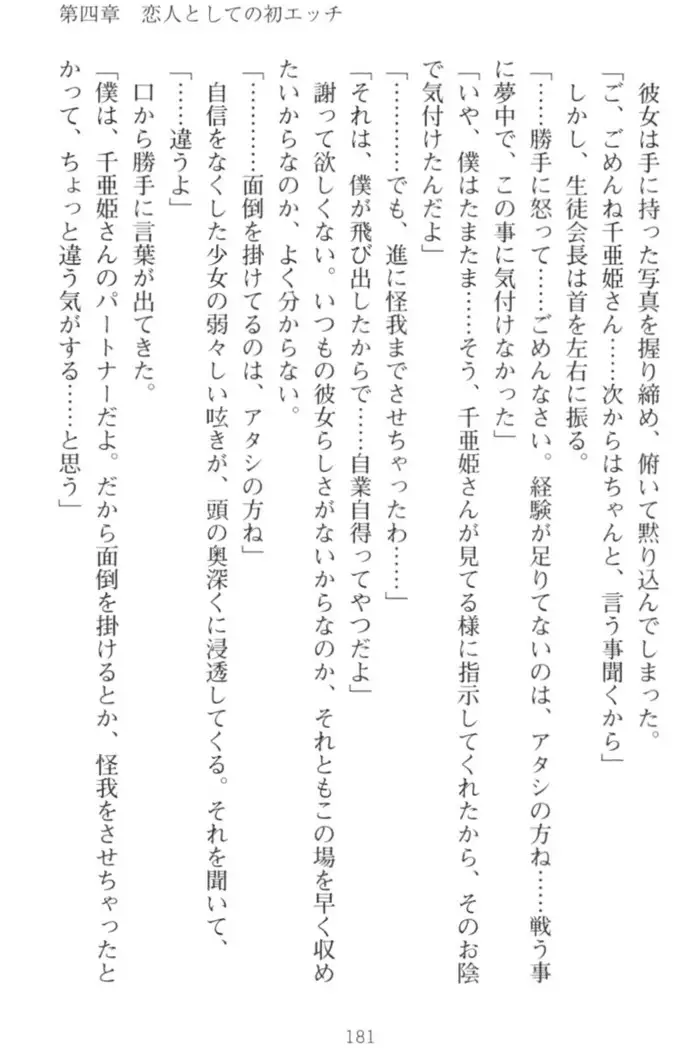 第四章　恋人としての初エッチ
彼女は手に持った写真を握り締め、俯いて黙り込んでしまった。
「ご、ごめんね千亜姫さん……次からはちゃんと、言う事聞くから」
しかし、生徒会長は首を左右に振る。
「……勝手に怒って……ごめんなさい。経験が足りてないのは、アタシの方ね……戦う事
に夢中で、この事に気付けなかった」
「いや、僕はたまたま……そう、千亜姫さんが見てる様に指示してくれたから、そのお陰
で気付けたんだよ」
「…………でも、進に怪我までさせちゃったわ……」
「それは、僕が飛び出したからで……自業自得ってやつだよ」
謝って欲しくない。いつもの彼女らしさがないからなのか、それともこの場を早く収め
たいからなのか、よく分からない。
「…………面倒を掛けてるのは、アタシの方ね」
自信をなくした少女の弱々しい呟きが、頭の奥深くに浸透してくる。それを聞いて、
「……違うよ」
口から勝手に言葉が出てきた。
「僕は、千亜姫さんのパートナーだよ。だから面倒を掛けるとか、怪我をさせちゃったと
かって、ちょっと違う気がする……と思う」
181